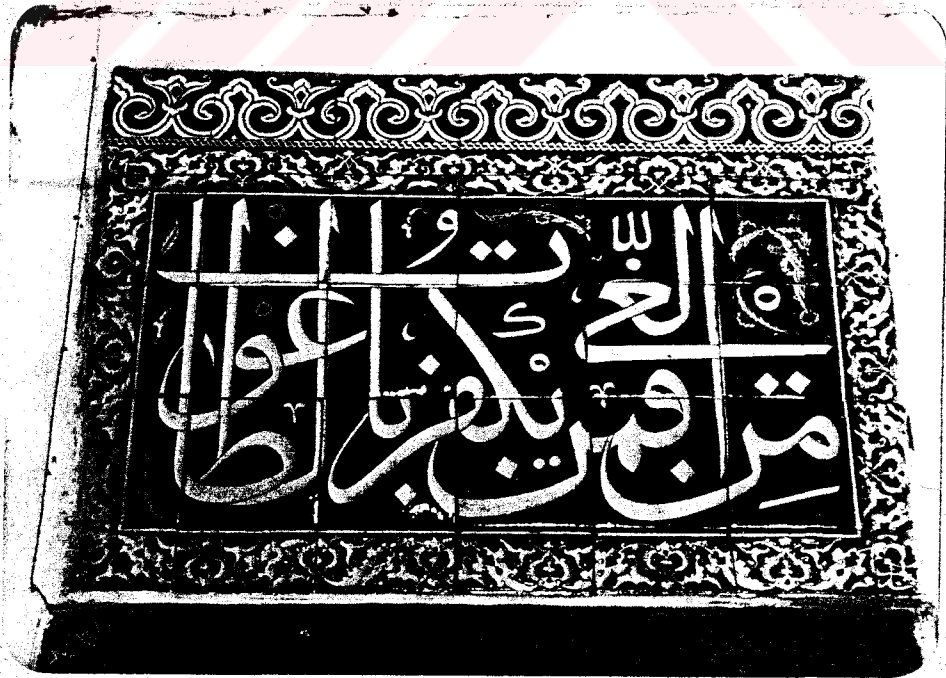 مِنَ الغَيِّ فَمَن يَكفُر بِالطَّاغُوتِ